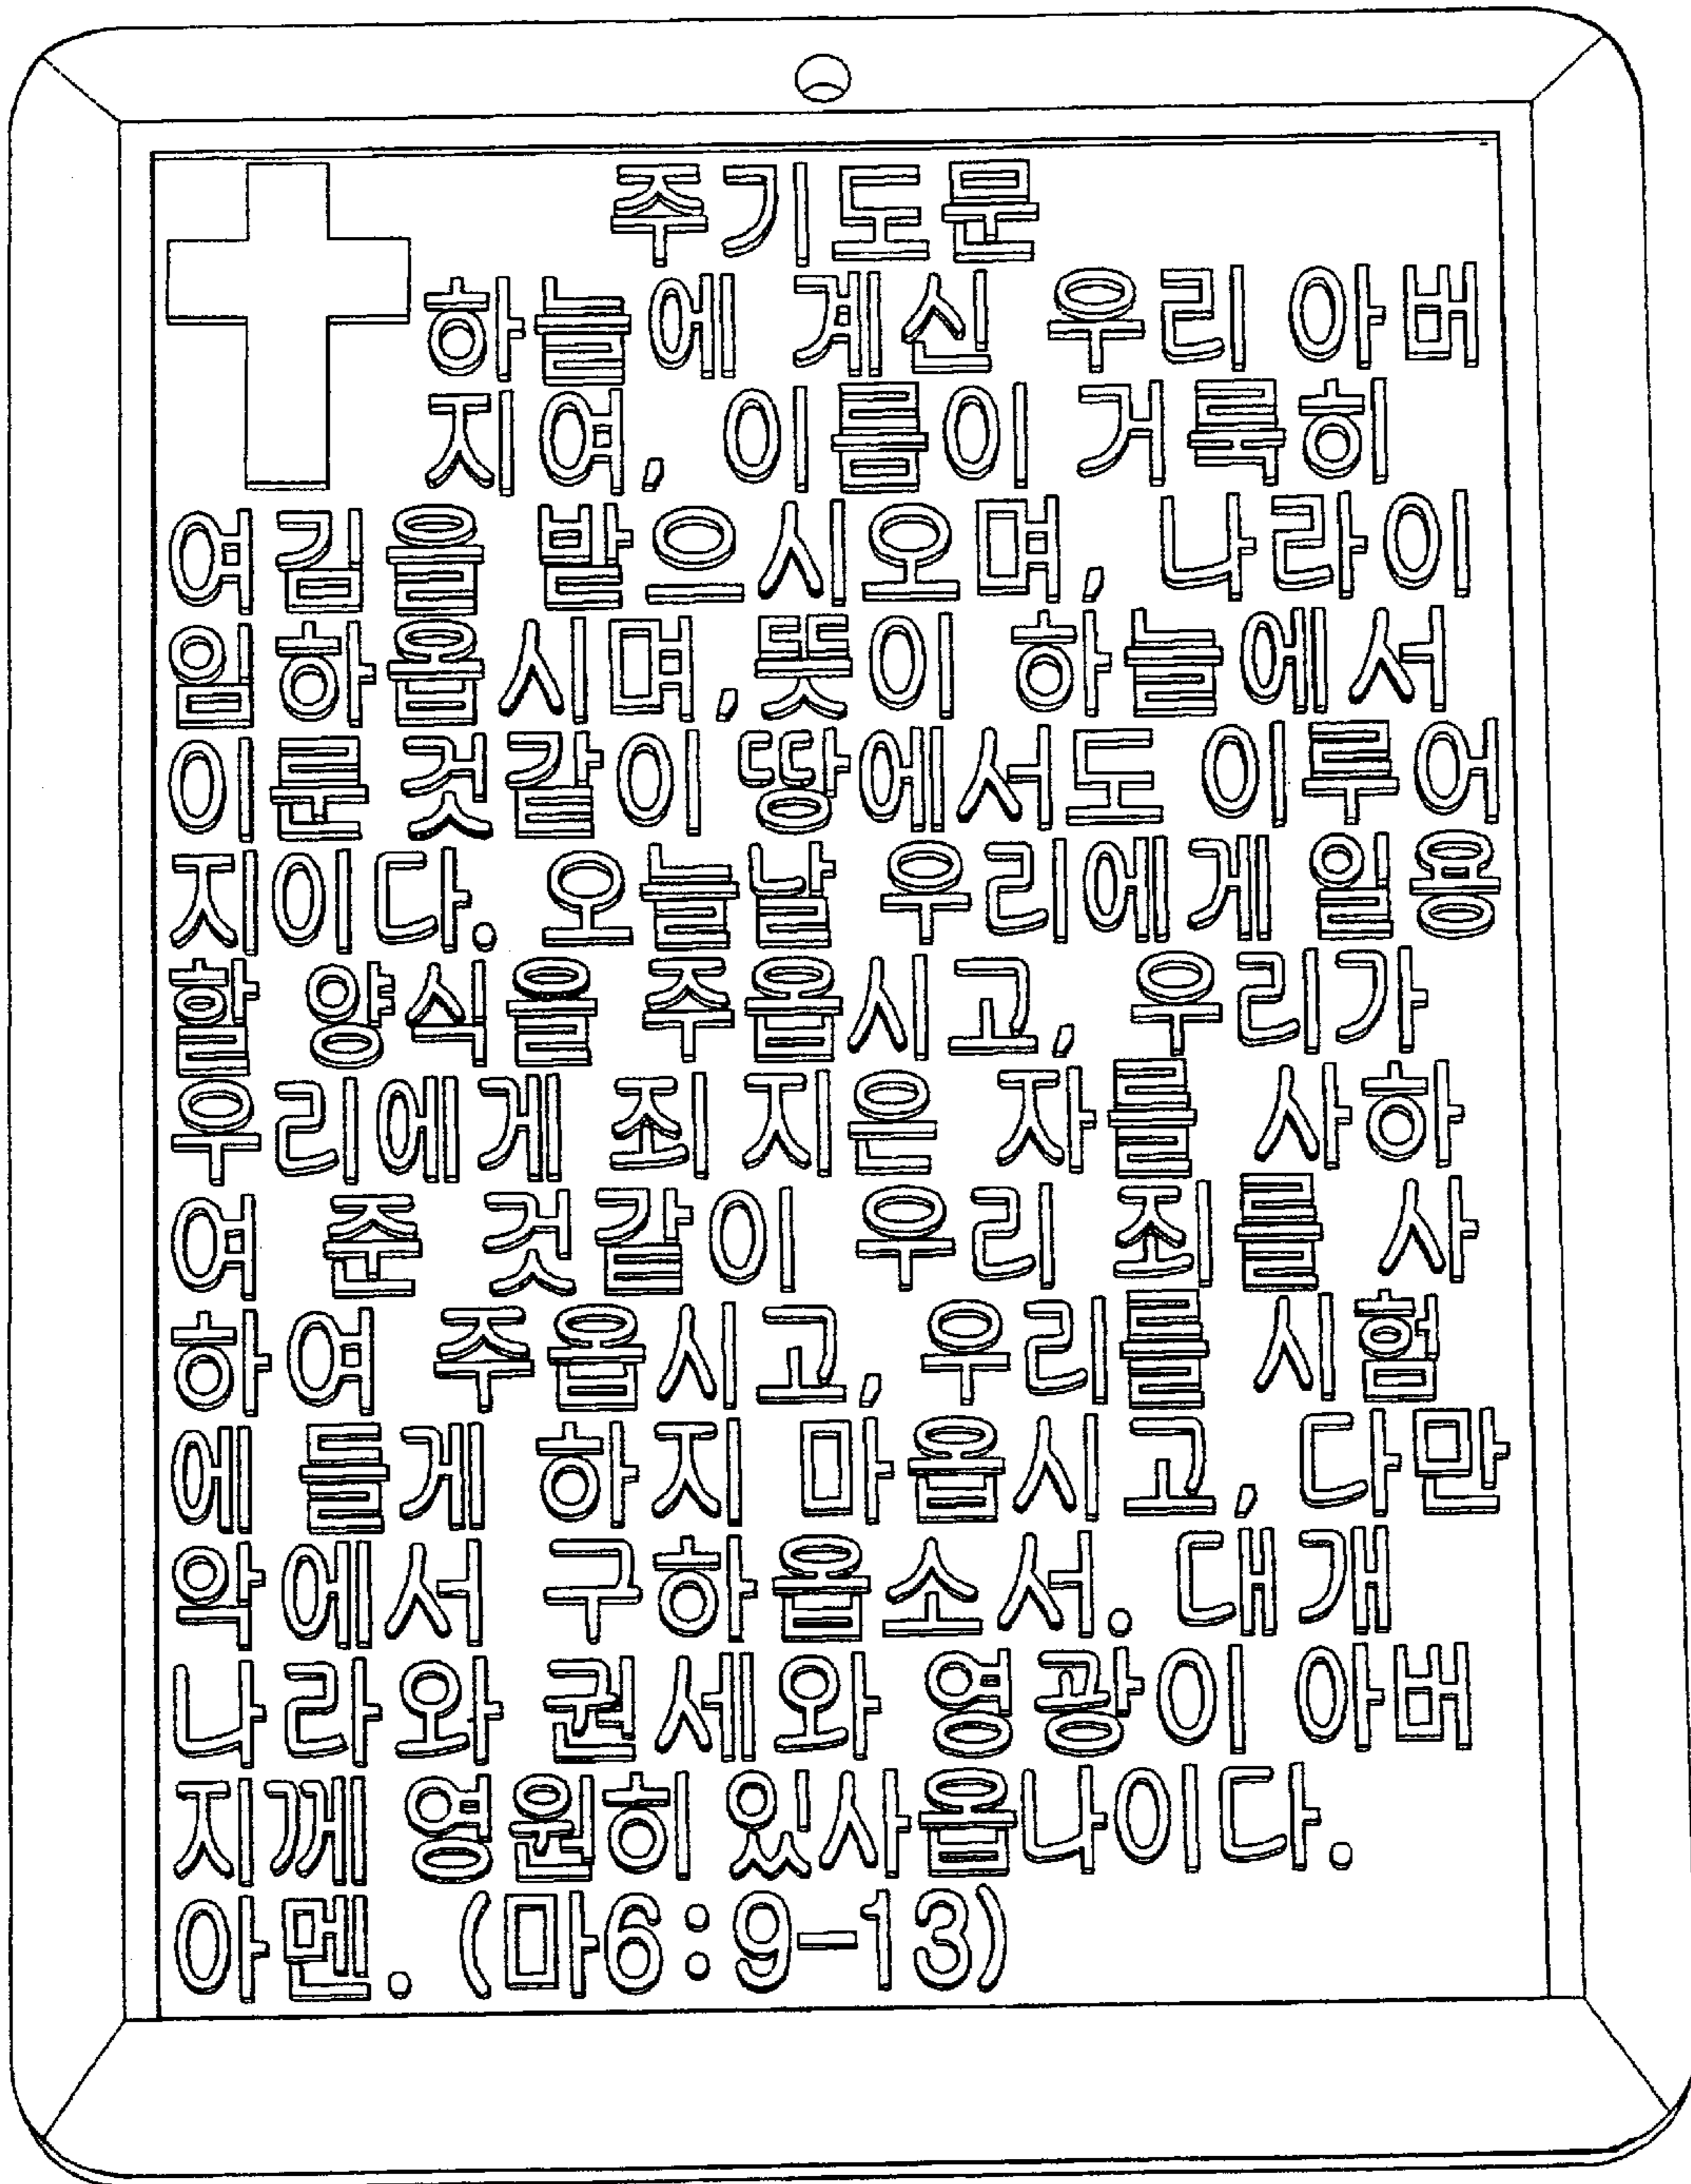 주기도문
하늘에 계신 우리 아버
지여, 이름이 거룩히
여김을 받으시오며, 나라이
임하옵시며,뜻이 하늘에서
이룬 것같이 땅에서도 이루어
지이다. 오늘날 우리에게 일용
할 양식을 주옵시고, 우리가
우리에게 죄 지은 자를 사하
여 준 것같이 우리 죄를 사
하여 주옵시고, 우리를 시험
에 들게 하지 마옵시고, 다만
악에서 구하옵소서. 대개
나라와 권세와 영광이 아버
지께 영원히 있사옵나이다.
아멘. (마6:9-13)